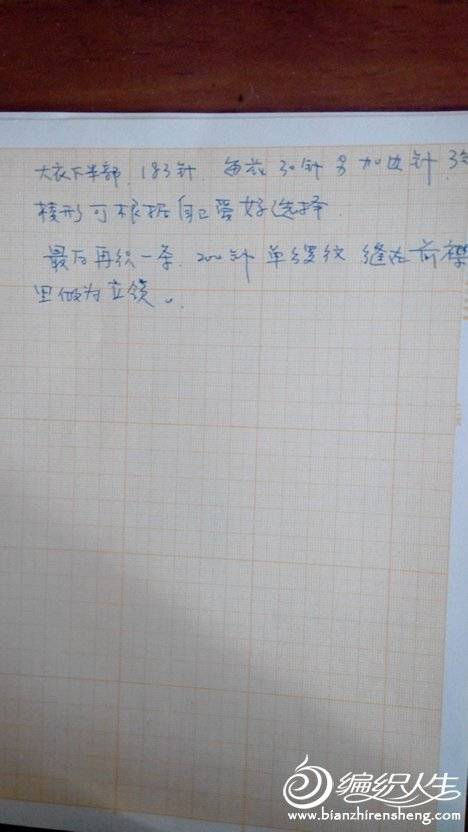 大衣下半部 183针 每花30针 另加边针 3针
楼形可根据自己爱好选择
最后再织一条 200针 单罗纹 缝在前襟
里做为立领。
编织人生
www.bianzhirensheng.com